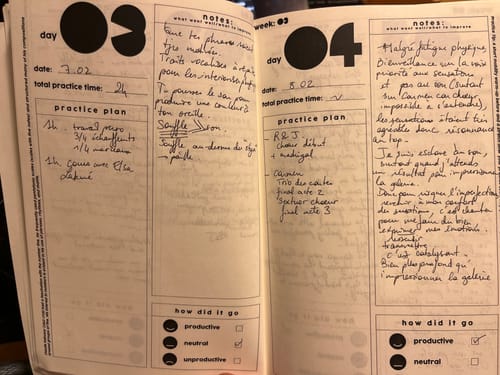 day 03
date: 7.02
total practice time: 2h
practice plan
1h. travail perso
3/4 échauffements
1/4 morceaux
1h cours avec Elsa
Lakmé
notes:
what went well/what to improve
tes phrases
Traits vocalises à
pour les intérioriser
Tu pousses le son pour
produire une couleur à
ton oreille.
Souffle son.
Souffle au-dessus du
→ paille
how did it go
productive
neutral
unproductive
week: 03
day 04
date: 8.02
total practice time:
practice plan
R & J
chœur début
+ madrigal
- Carmen
Trio des cartes
final acte 2
sextuor chœur
final acte 3
notes:
what went well/what to improve
Malgré fatigue physique,
Bienveillance sur la voix
priorité aux sensations
et pas au son (surtout
sur Carmen car chœur
impossible à s'entendre),
les sensations étaient très
agréables donc résonance
au top.
Je suis esclave du son,
surtout quand j'attends
un résultat pour impressionner
la galerie.
Donc pour soigner l'imperfection
revenir à mon confort
du sensitive, c'est chanter
pour me faire du bien
exprimer mes émotions.
ressentir
transmettre
c'est catalysant.
Bien plus profond qu'
impressionner la galerie
how did it go
productive
neutral